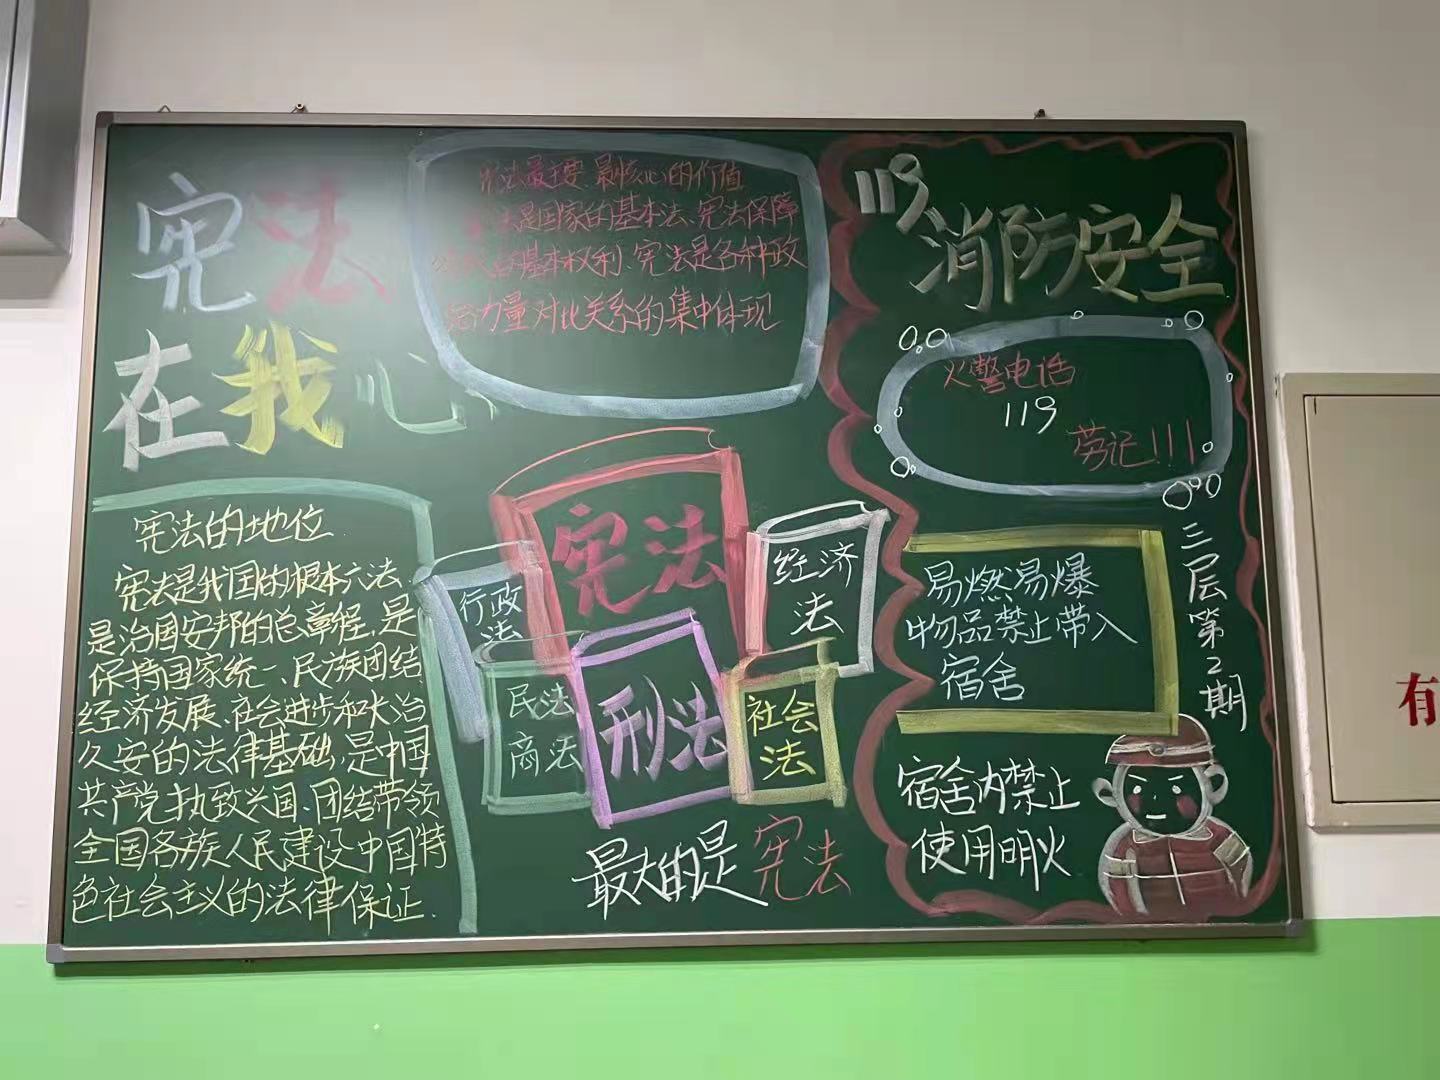 宪法
在我心
宪法最主要、最核心的价值
宪法是国家的基本法、宪法保障
的基本权利、宪法是各种政
治力量对比关系的集中体现
宪法的地位
宪法是我国的根本大法、
是治国安邦的总章程,是
保持国家统一、民族团结
经济发展、社会进步和长治
久安的法律基础,是中国
共产党执政兴国、团结带领
全国各族人民建设中国特
色社会主义的法律保证.
宪法
行政
法
经济
法
民法
商法
刑法
社会
法
最大的是宪法
119
消防安全
火警电话
119
劳记!!!
易燃易爆
物品禁止带入
宿舍
宿舍内禁止
使用明火
三层第2期
有